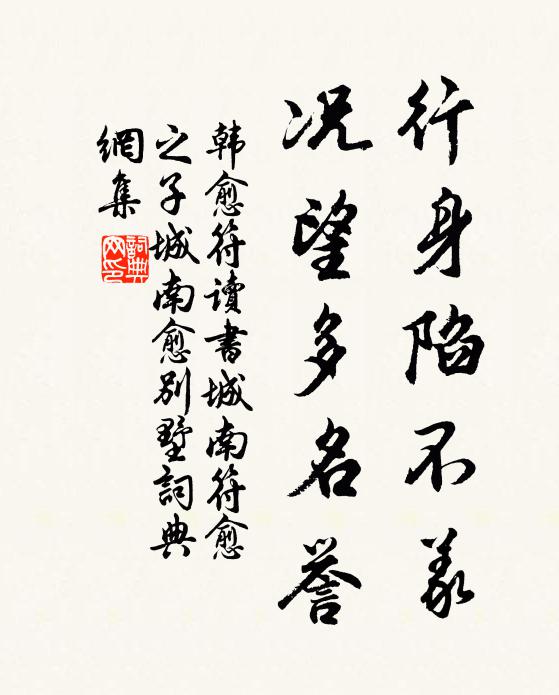 行身陷不義
况望多名誉
韩愈符讀書城南符愈
之子城南愈别墅詞典
網集
詞典
网印